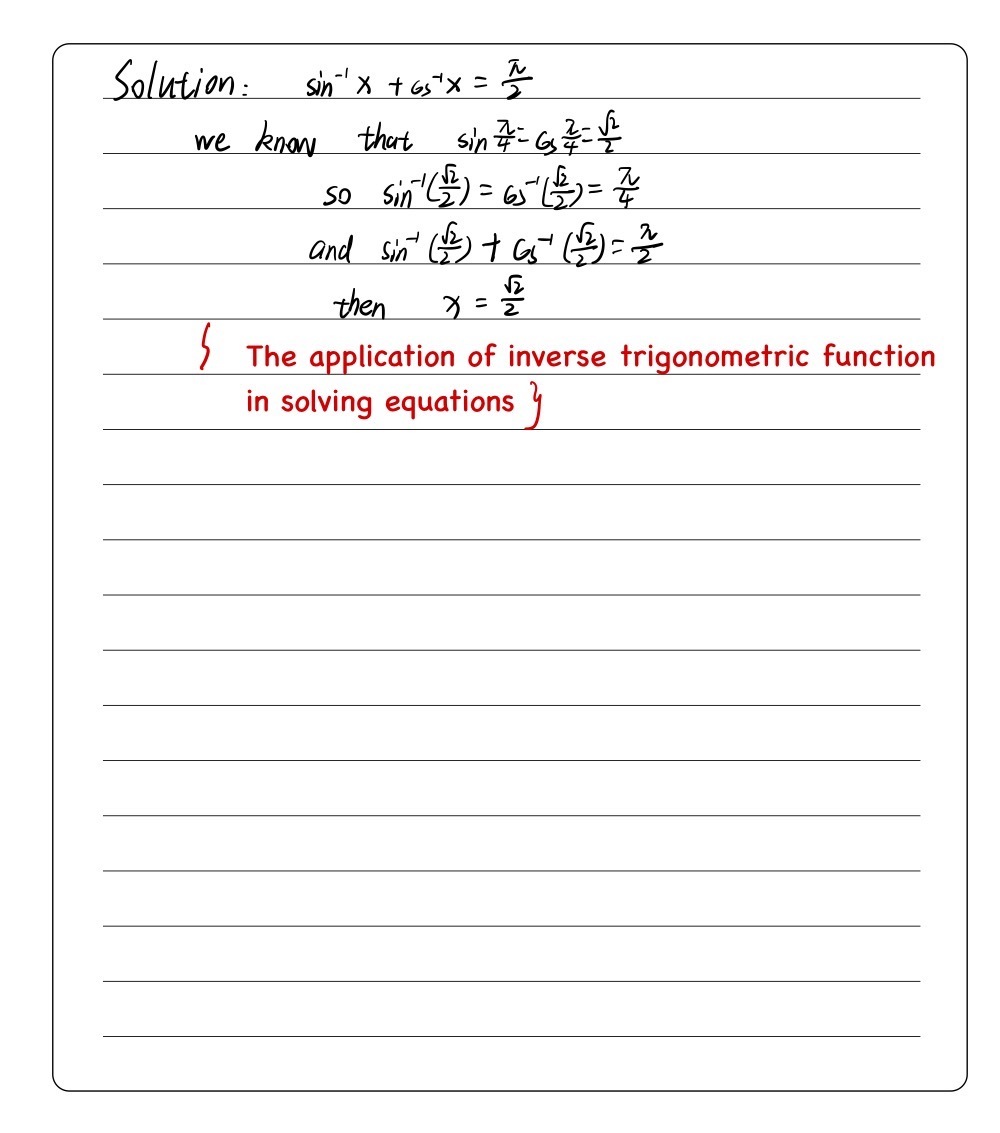 Solution: sin⁻¹ x + cos⁻¹ x = π/2
we know that sin π/4 = cos π/4 = √2/2
so sin⁻¹(√2/2) = cos⁻¹(√2/2) = π/4
and sin⁻¹(√2/2) + cos⁻¹(√2/2) = π/2
then x = √2/2
{ The application of inverse trigonometric function
in solving equations }